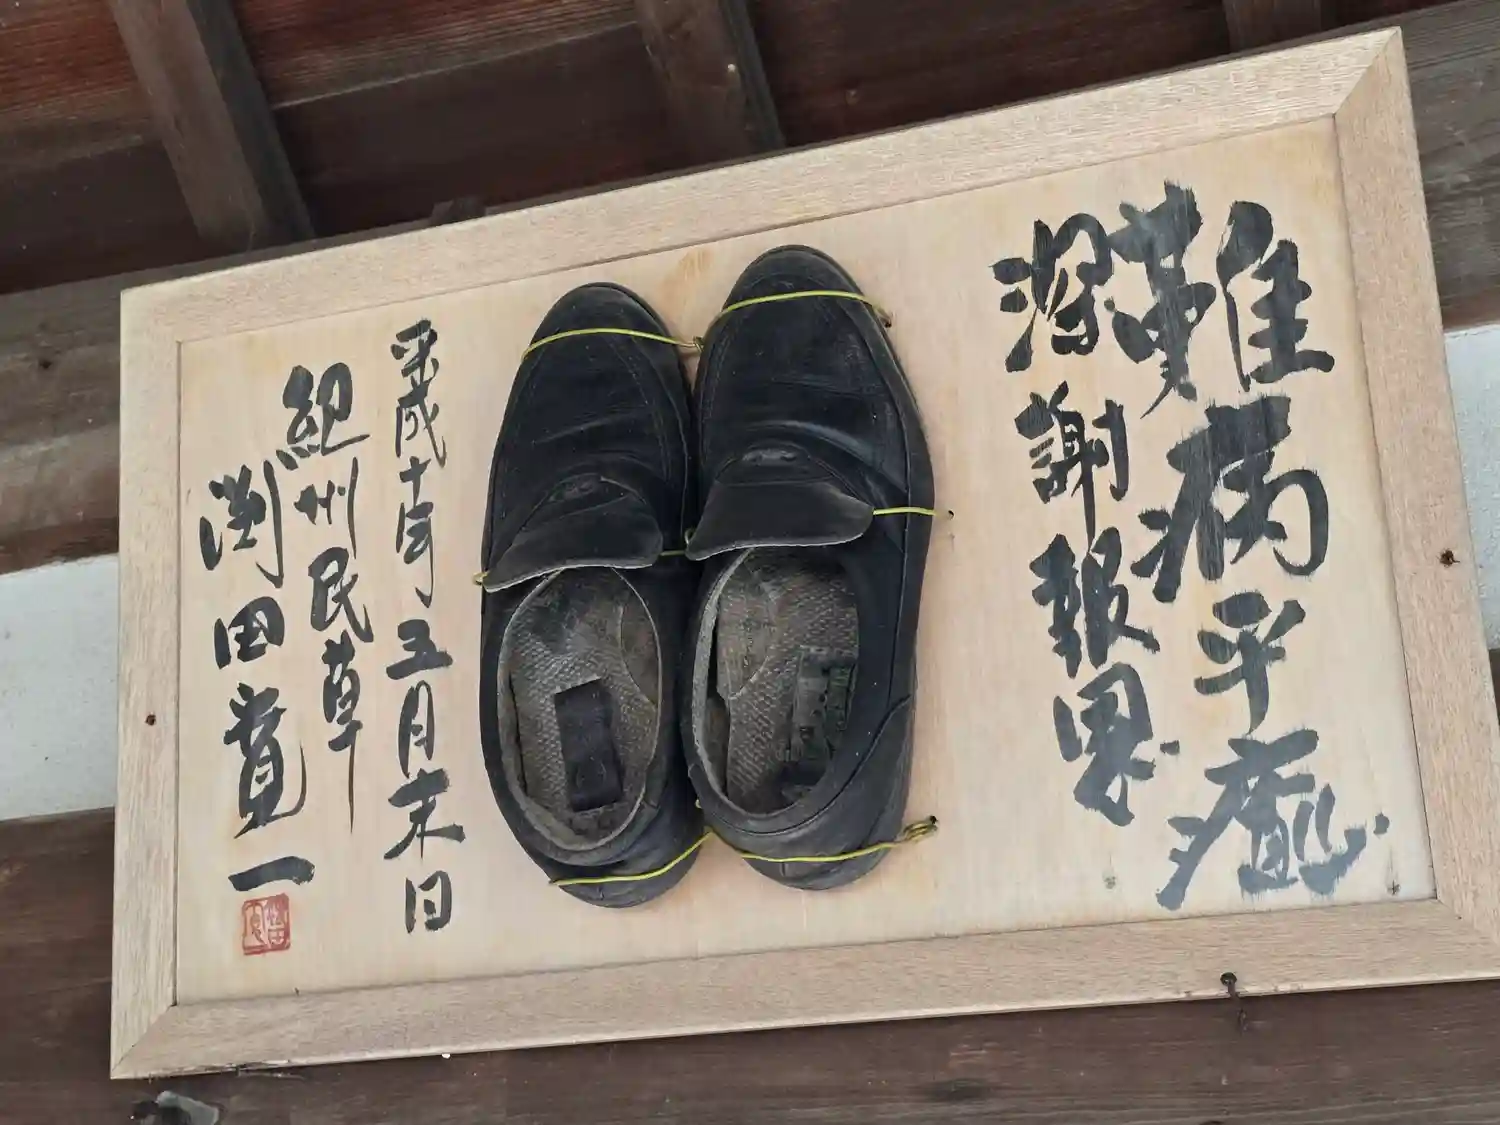 難病平癒
深謝報恩
平成十年五月末日
紀州民草
渕田